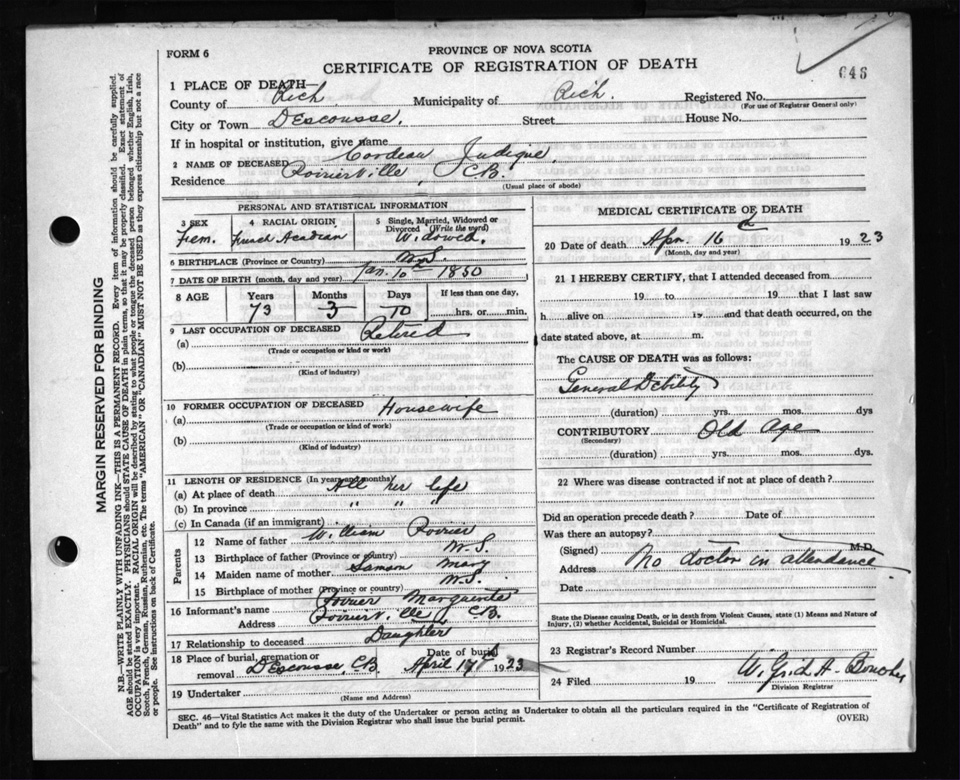 FORM 6
PROVINCE OF NOVA SCOTIA
CERTIFICATE OF REGISTRATION OF DEATH
646
1 PLACE OF DEATH
County of Rich Municipality of Rich. Registered No.
(For use of Registrar General only)
City or Town DEscousse. Street House No.
If in hospital or institution, give name
2 NAME OF DECEASED Cordeau Judique
Residence PoirierVille, CB.
(Usual place of abode)
PERSONAL AND STATISTICAL INFORMATION
3 SEX
Fem.
4 RACIAL ORIGIN
French Acadian
5 Single, Married, Widowed or Divorced (Write the word)
Widowed.
6 BIRTHPLACE (Province or Country) N.S.
7 DATE OF BIRTH (month, day and year) Jan. 10th 1850
8 AGE Years Months Days If less than one day,
73 3 10 hrs. or min.
9 LAST OCCUPATION OF DECEASED
(a) Retired
(Trade or occupation or kind or work)
(b)
(Kind of industry)
10 FORMER OCCUPATION OF DECEASED
(a) Housewife
(Trade or occupation or kind of work)
(b)
(Kind of industry)
11 LENGTH OF RESIDENCE (In years and months)
(a) At place of death All her life
(b) In province " " "
(c) In Canada (if an immigrant)
Parents
12 Name of father William Poirier
13 Birthplace of father (Province or country) N.S.
14 Maiden name of mother Samson Mary
15 Birthplace of mother (Province or country) N.S.
16 Informant's name Poirier Marguerite
Address PoirierVille, CB.
17 Relationship to deceased Daughter
18 Place of burial, cremation or removal DEscousse, C.B.
Date of burial April 17th 1923
19 Undertaker
(Name and Address)
MEDICAL CERTIFICATE OF DEATH
20 Date of death Apr 16 1923
(Month, day and year)
21 I HEREBY CERTIFY, that I attended deceased from
19 to 19 that I last saw
h alive on 19 and that death occurred, on
date stated above, at m.
The CAUSE OF DEATH was as follows:
General Debility
(duration) yrs. mos. dys
CONTRIBUTORY Old Age
(Secondary)
(duration) yrs. mos. dys.
22 Where was disease contracted if not at place of death?
Did an operation precede death? Date of
Was there an autopsy?
(Signed) M.D.
Address No doctor in attendance
Date
State the Disease causing Death, or in death from Violent Causes, state (1) Means and Nature of Injury, (2) whether Accidental, Suicidal or Homicidal.
23 Registrar's Record Number
24 Filed 19
Division Registrar
SEC. 46—Vital Statistics Act makes it the duty of the Undertaker or person acting as Undertaker to obtain all the particulars required in the "Certificate of Registration of
Death" and to fyle the same with the Division Registrar who shall issue the burial permit. (OVER)
MARGIN RESERVED FOR BINDING
N.B.—WRITE PLAINLY WITH UNFADING INK—THIS IS A PERMANENT RECORD. Every item of information should be carefully supplied.
AGE should be stated EXACTLY. PHYSICIANS should STATE CAUSE OF DEATH in plain terms, so that it may be properly classified. Exact statement of
OCCUPATION is very important. RACIAL ORIGIN will be described by stating to what people or tongue the deceased person belonged whether English, Irish,
Scotch, French, German, Russian, Ruthenian, etc. The terms "AMERICAN" OR "CANADIAN" MUST NOT BE USED as they express citizenship but not a race
or people. See instructions on back of Certificate.